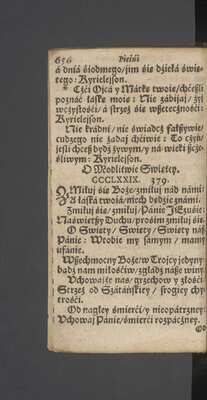 656 Pieśni
á dniá siodmego/jim śie dziełá świę-
tego: Kyrieleison.
* Czći Ojcá y Mátkę twoię/chćeszli
poznáć łáskę moię: Nie zábijaj/ żyj
wczystośći/ á strzeż śię wszetecznośći:
Kyrieleison.
Nie krádni/ nie świadcz fałszywie/
cudzego nie żądaj chćiwie: To czyń/
jesli chcesz bydź żywym/ y ná wieki szczę-
śliwym: Kyrieleison.
O Modlitwie Swiętey.
CCCLXXIX. 379.
ZMiłuj śię Boże/zmiłuj nád námi:
Z łáská twoiá/niech będzie známi.
Zmiłuj śię/zmiłuj/Pánie JEzusie:
Naświętszy Duchu/prośim zmiłuj śię.
O Swięty/ Swięty/ Swięty nász
Pánie: Wtobie my sámym/ mamy
ufánie.
Wszechmocny Boże/w Troycy jedyny
bądź nam miłośćiw/zgłádź násze winy
Uchowajże nas/grzechow y złośći
Strzeż od Szátáńskiey/ srogiey chy-
trośći.
Od nagłey śmierći/y nieopátrzney:
Uchowaj Pánie/śmierći rozpáczney.
Od